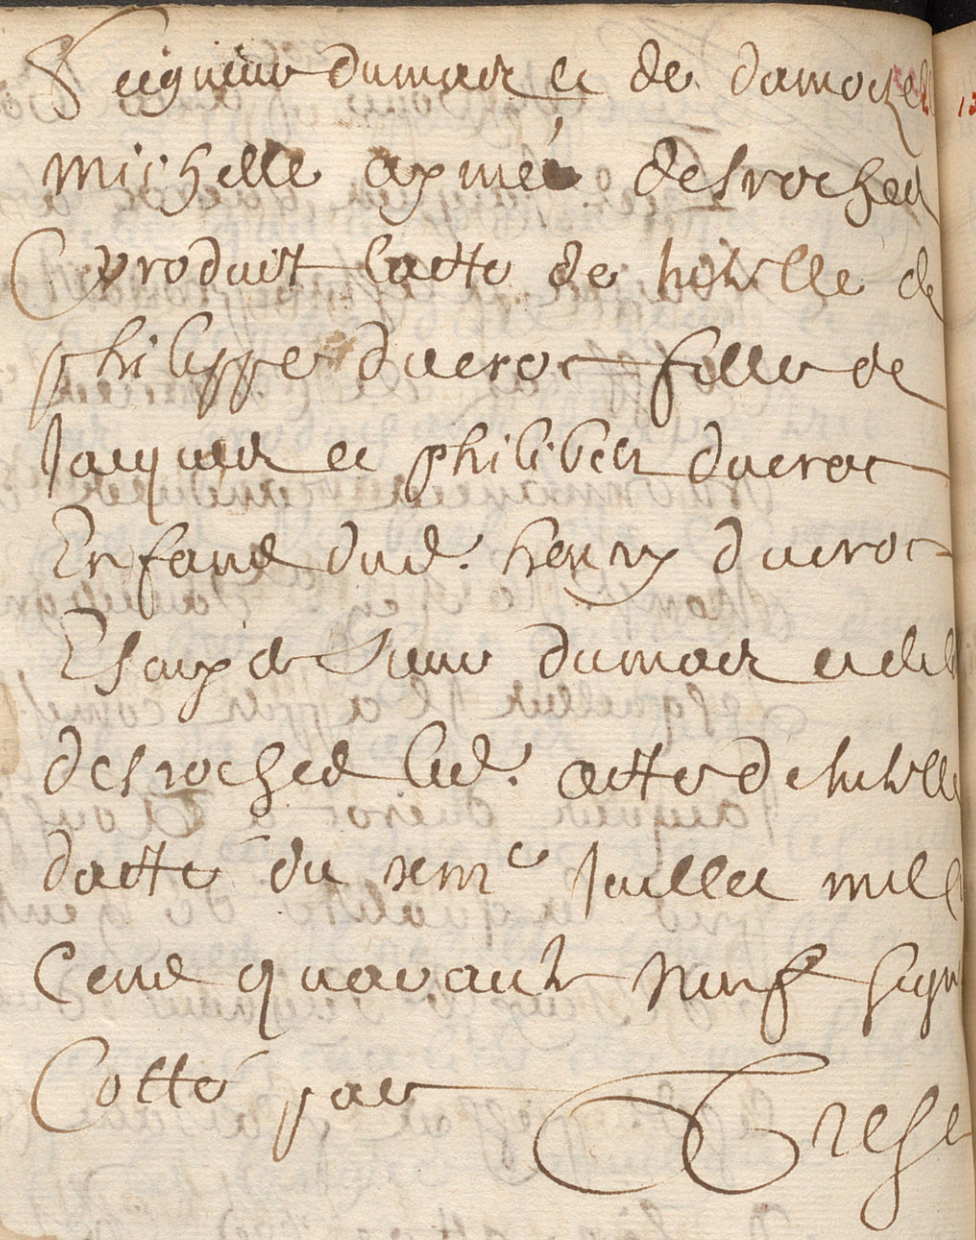 Seigneur dumaix et de damoizel
michelle aymée desroches
Produit lacte de tutelle de
philippes ducroc fille de
Jacques et philibert ducroc
Enfans dud. henry ducroc
Escuyer Sieur dumaix et de
desroches led. acte de tutelle
datté du Juillet mil
Cens quarante neuf sign
Cotté par